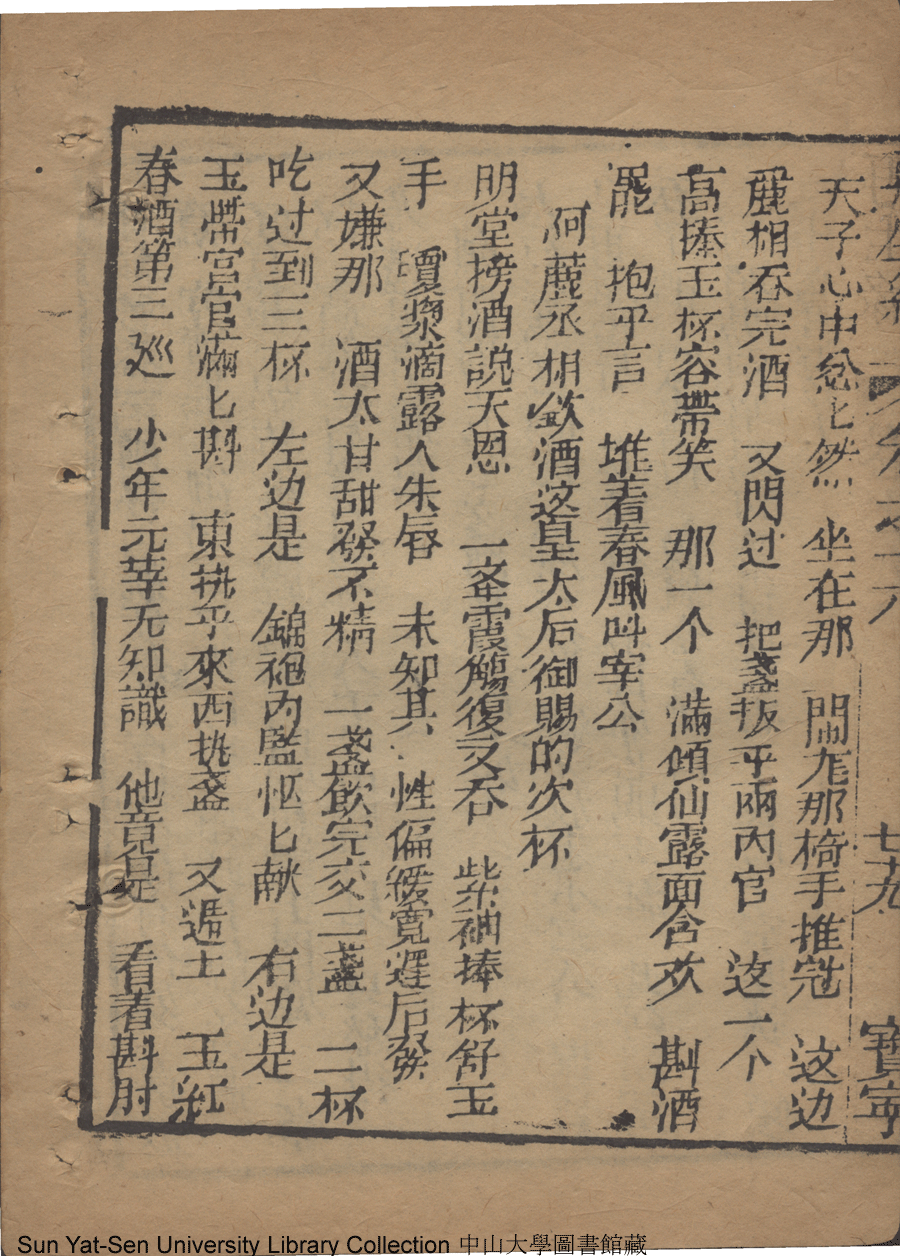 再生緣 卷之六 七十九 寶寧
天子心中忿匕然 坐在那 鬧龙那椅手推冠 这边
麗相吞完酒 又閃过 把盞扳平兩内官 这一个
高捧玉杯容帶笑 那一个 滿傾仙露面含欢 斟酒
罷 抱乎言 堆着春風叫宰公
阿麗丞相飲酒这皇太后御賜的次杯
明堂接酒説天恩 一奉霞觴復又吞 紫袖捧杯舒玉
手 瓊漿滴露人朱唇 未知其 性偏緩寬遲后發
又嫌那 酒太甘甜發不精 一盞飲完交二盞 二杯
吃过到三杯 左边是 錦袍内監忙匕献 右边是
玉帶宫官滿匕斟 東執乎來西执盞 又遞土 玉紅
春酒第三廵 少年元宰无知識 他竟是 看着斟肘
Sun Yat-Sen University Library Collection 中山大學圖書館藏